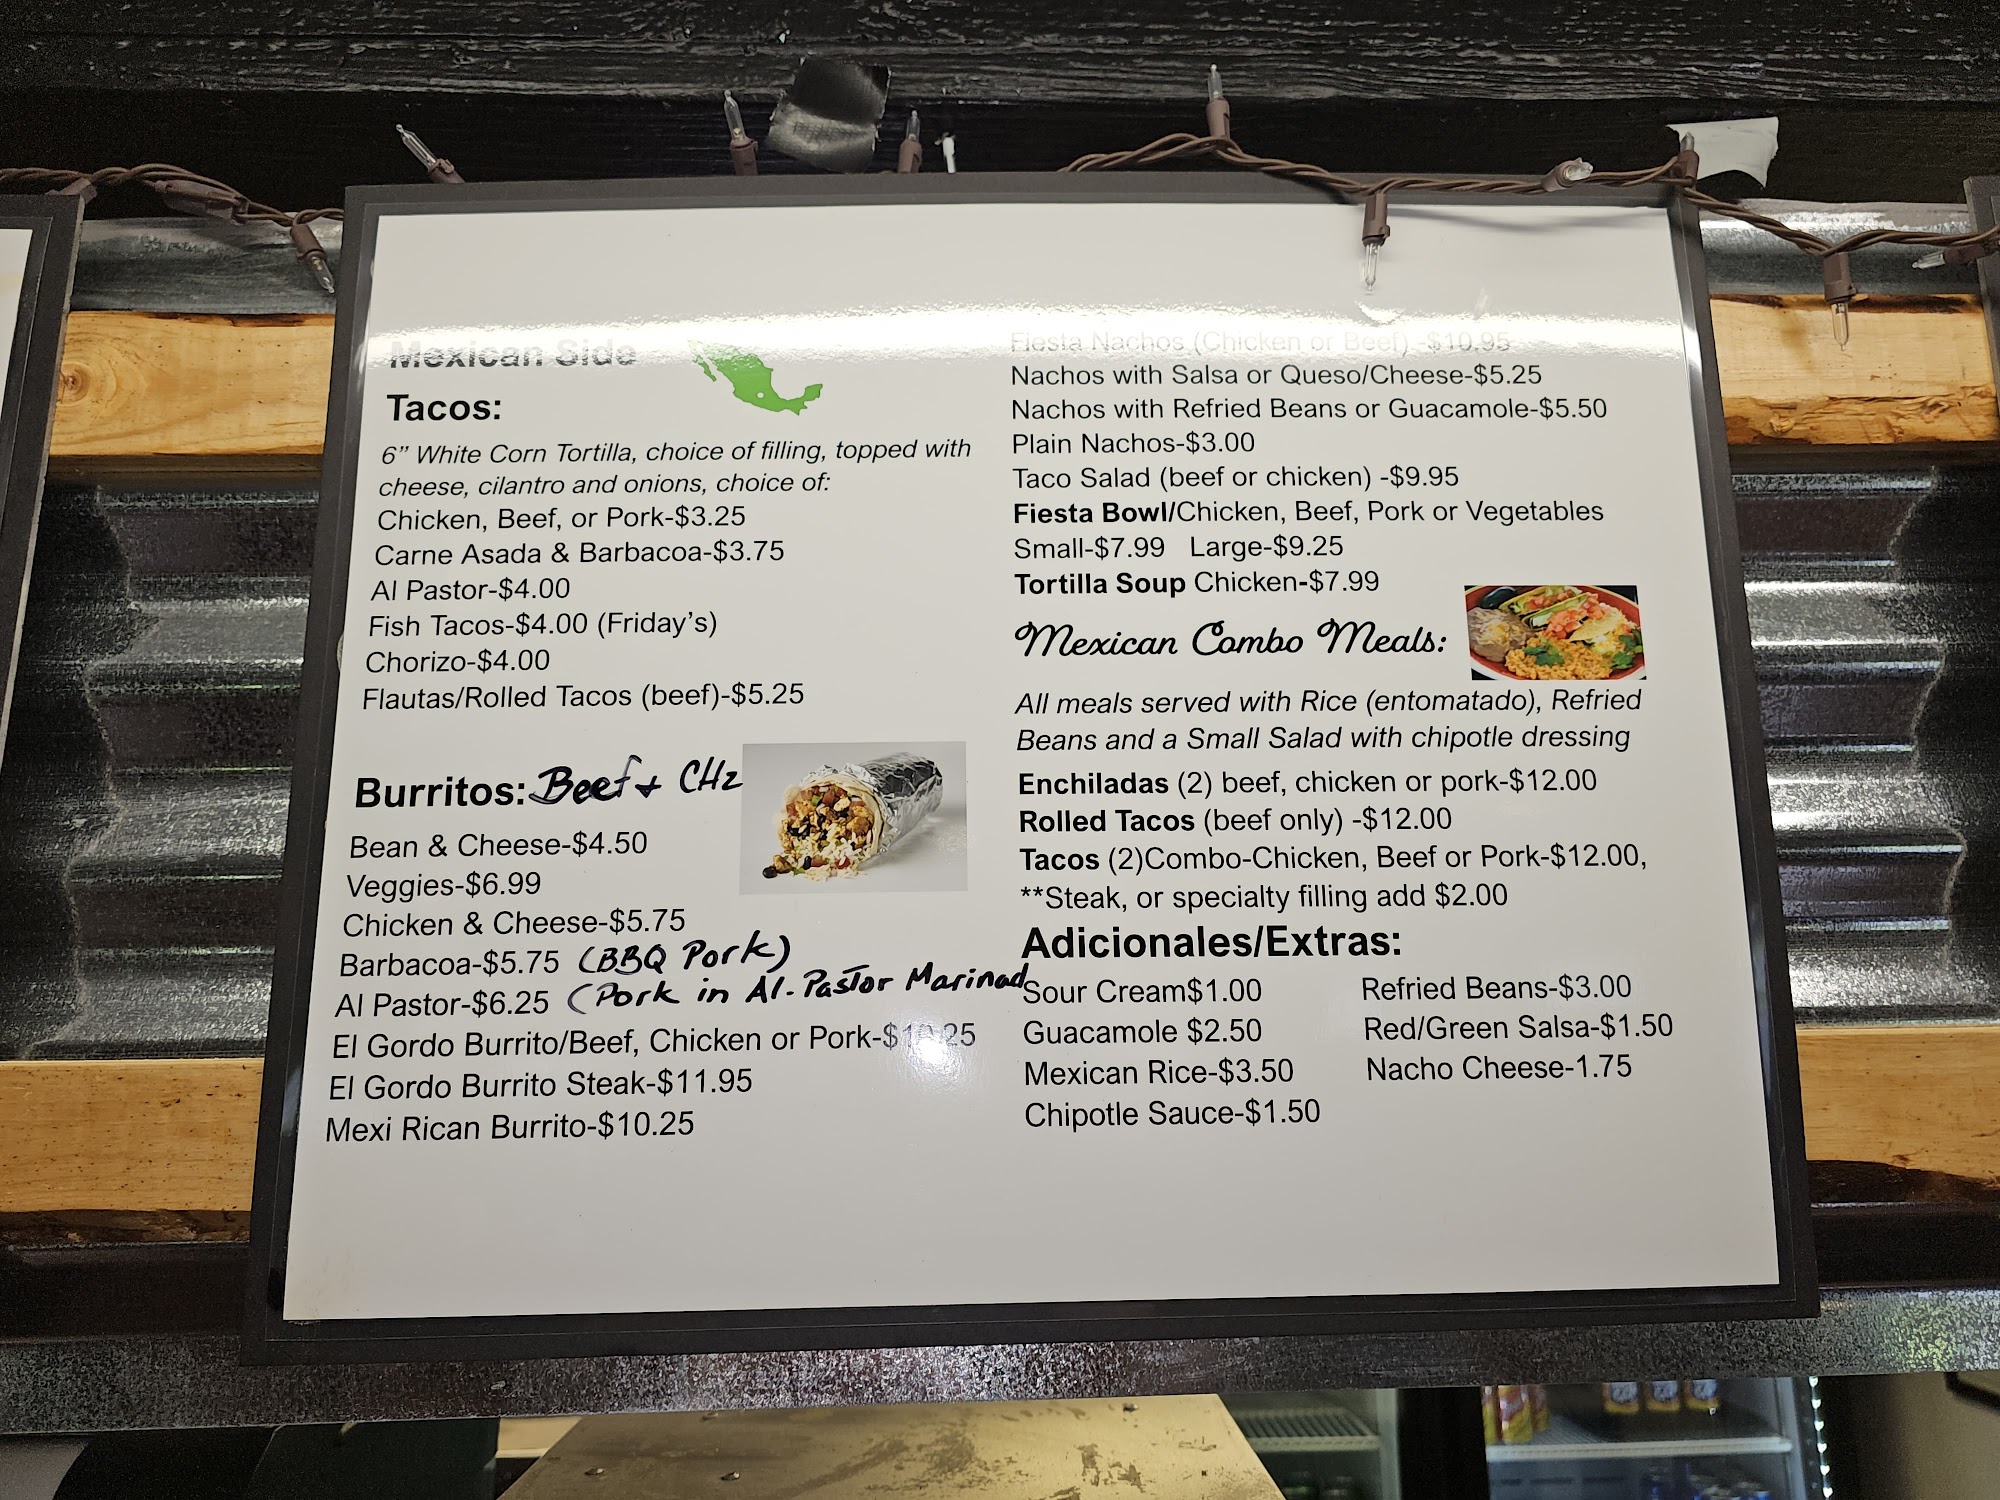 Mexican Side
Tacos:
6” White Corn Tortilla, choice of filling, topped with
cheese, cilantro and onions, choice of:
Chicken, Beef, or Pork-$3.25
Carne Asada & Barbacoa-$3.75
Al Pastor-$4.00
Fish Tacos-$4.00 (Friday’s)
Chorizo-$4.00
Flautas/Rolled Tacos (beef)-$5.25
Burritos: Beef + CHz
Bean & Cheese-$4.50
Veggies-$6.99
Chicken & Cheese-$5.75
Barbacoa-$5.75 (BBQ Pork)
Al Pastor-$6.25 (Pork in Al-Pastor Marinad
El Gordo Burrito/Beef, Chicken or Pork-$10.25
El Gordo Burrito Steak-$11.95
Mexi Rican Burrito-$10.25
Fiesta Nachos (Chicken or Beef) -$10.95
Nachos with Salsa or Queso/Cheese-$5.25
Nachos with Refried Beans or Guacamole-$5.50
Plain Nachos-$3.00
Taco Salad (beef or chicken) -$9.95
Fiesta Bowl/Chicken, Beef, Pork or Vegetables
Small-$7.99 Large-$9.25
Tortilla Soup Chicken-$7.99
Mexican Combo Meals:
All meals served with Rice (entomatado), Refried
Beans and a Small Salad with chipotle dressing
Enchiladas (2) beef, chicken or pork-$12.00
Rolled Tacos (beef only) -$12.00
Tacos (2)Combo-Chicken, Beef or Pork-$12.00,
**Steak, or specialty filling add $2.00
Adicionales/Extras:
Sour Cream$1.00
Guacamole $2.50
Mexican Rice-$3.50
Chipotle Sauce-$1.50
Refried Beans-$3.00
Red/Green Salsa-$1.50
Nacho Cheese-1.75